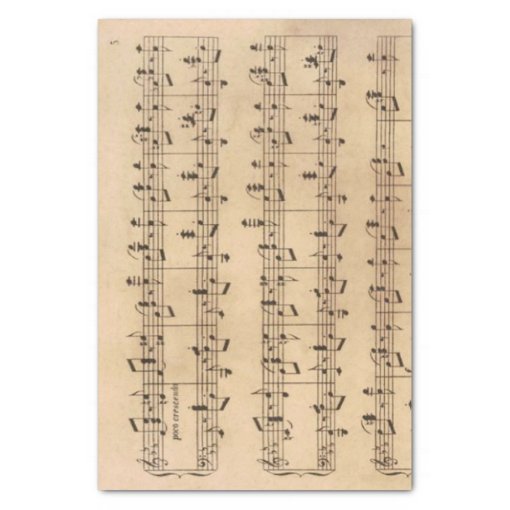 5
poco crescendo